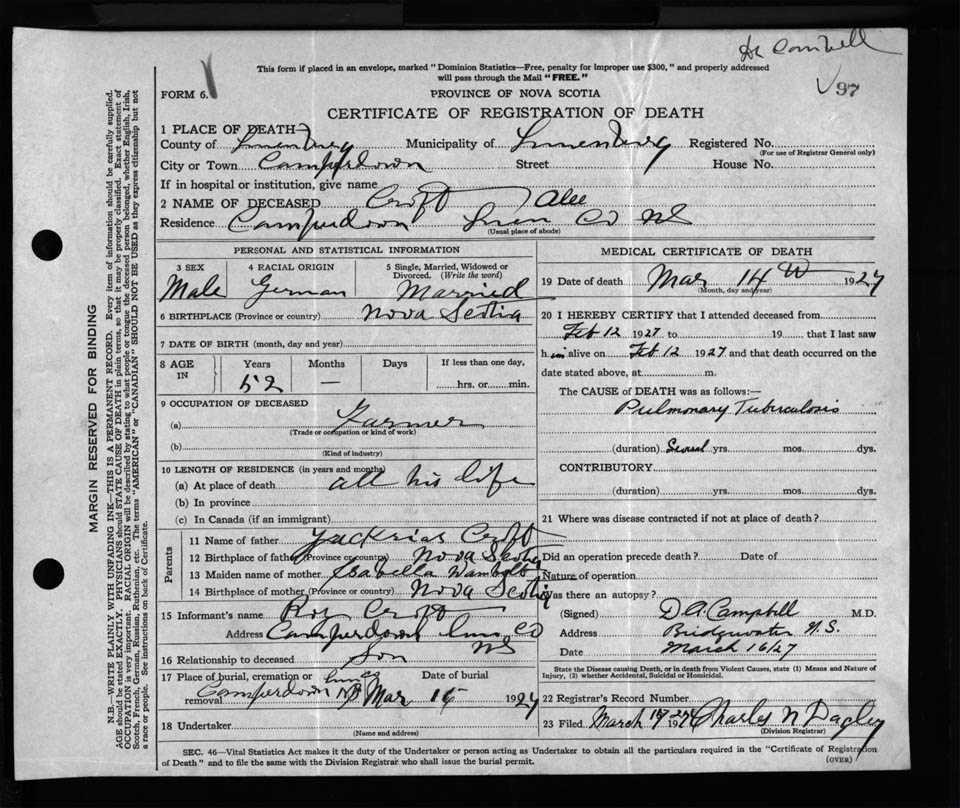 Dr Cambell
This form if placed in an envelope, marked "Dominion Statistics—Free, penalty for improper use $300," and properly addressed
will pass through the Mail "FREE."
97
FORM 6.
PROVINCE OF NOVA SCOTIA
CERTIFICATE OF REGISTRATION OF DEATH
1 PLACE OF DEATH—
County of Lunenburg Municipality of Lunenburg Registered No.
(For use of Registrar General only)
City or Town Camperdown Street House No.
If in hospital or institution, give name
2 NAME OF DECEASED Croft Alec
Residence Camperdown Lun Co NS
(Usual place of abode)
PERSONAL AND STATISTICAL INFORMATION
3 SEX 4 RACIAL ORIGIN 5 Single, Married, Widowed or
Divorced. (Write the word)
Male German Married
6 BIRTHPLACE (Province or country) Nova Scotia
7 DATE OF BIRTH (month, day and year)
8 AGE IN Years Months Days If less than one day,
52 — hrs. or min.
9 OCCUPATION OF DECEASED
(a) Farmer
(Trade or occupation or kind of work)
(b)
(Kind of industry)
10 LENGTH OF RESIDENCE (in years and months)
(a) At place of death all his life
(b) In province
(c) In Canada (if an immigrant)
Parents
11 Name of father Zackrias Croft
12 Birthplace of father (Province or country) Nova Scotia
13 Maiden name of mother Isabella Wambolt
14 Birthplace of mother (Province or country) Nova Scotia
15 Informant's name Roy Croft
Address Camperdown Lun Co
NS
16 Relationship to deceased Son
17 Place of burial, cremation or Lun Co Date of burial
removal Camperdown NS Mar 15 1927
18 Undertaker
(Name and address)
MEDICAL CERTIFICATE OF DEATH
19 Date of death Mar 14 1927
(Month, day and year)
20 I HEREBY CERTIFY that I attended deceased from
Feb 12 1927 to 19 that I last saw
h im alive on Feb 12 1927 and that death occurred on the
date stated above, at m.
The CAUSE of DEATH was as follows:—
Pulmonary Tuberculosis
(duration) Several yrs. mos. dys.
CONTRIBUTORY
(duration) yrs. mos. dys.
21 Where was disease contracted if not at place of death?
Did an operation precede death? Date of
Nature of operation
Was there an autopsy?
(Signed) D A Campbell M.D.
Address Bridgewater N.S.
Date March 16/27
State the Disease causing Death, or in death from Violent Causes, state (1) Means and Nature of
Injury, (2) whether Accidental, Suicidal or Homicidal.
22 Registrar's Record Number
23 Filed March 19 1927 Charles N Pagley
(Division Registrar)
SEC. 46—Vital Statistics Act makes it the duty of the Undertaker or person acting as Undertaker to obtain all the particulars required in the "Certificate of Registration
of Death" and to file the same with the Division Registrar who shall issue the burial permit.
(OVER)
MARGIN RESERVED FOR BINDING
N.B.—WRITE PLAINLY WITH UNFADING INK—THIS IS A PERMANENT RECORD. Every item of information should be carefully supplied.
AGE should be stated EXACTLY. PHYSICIANS should STATE CAUSE OF DEATH in plain terms, so that it may be properly classified. Exact statement of
OCCUPATION is very important. RACIAL ORIGIN will be described by stating to what people or tongue the deceased person belonged, whether English, Irish,
Scotch, French, German, Russian, Ruthenian, etc. The terms "AMERICAN" or "CANADIAN" SHOULD NOT BE USED as they express citizenship but not
a race or people. See instructions on back of Certificate.